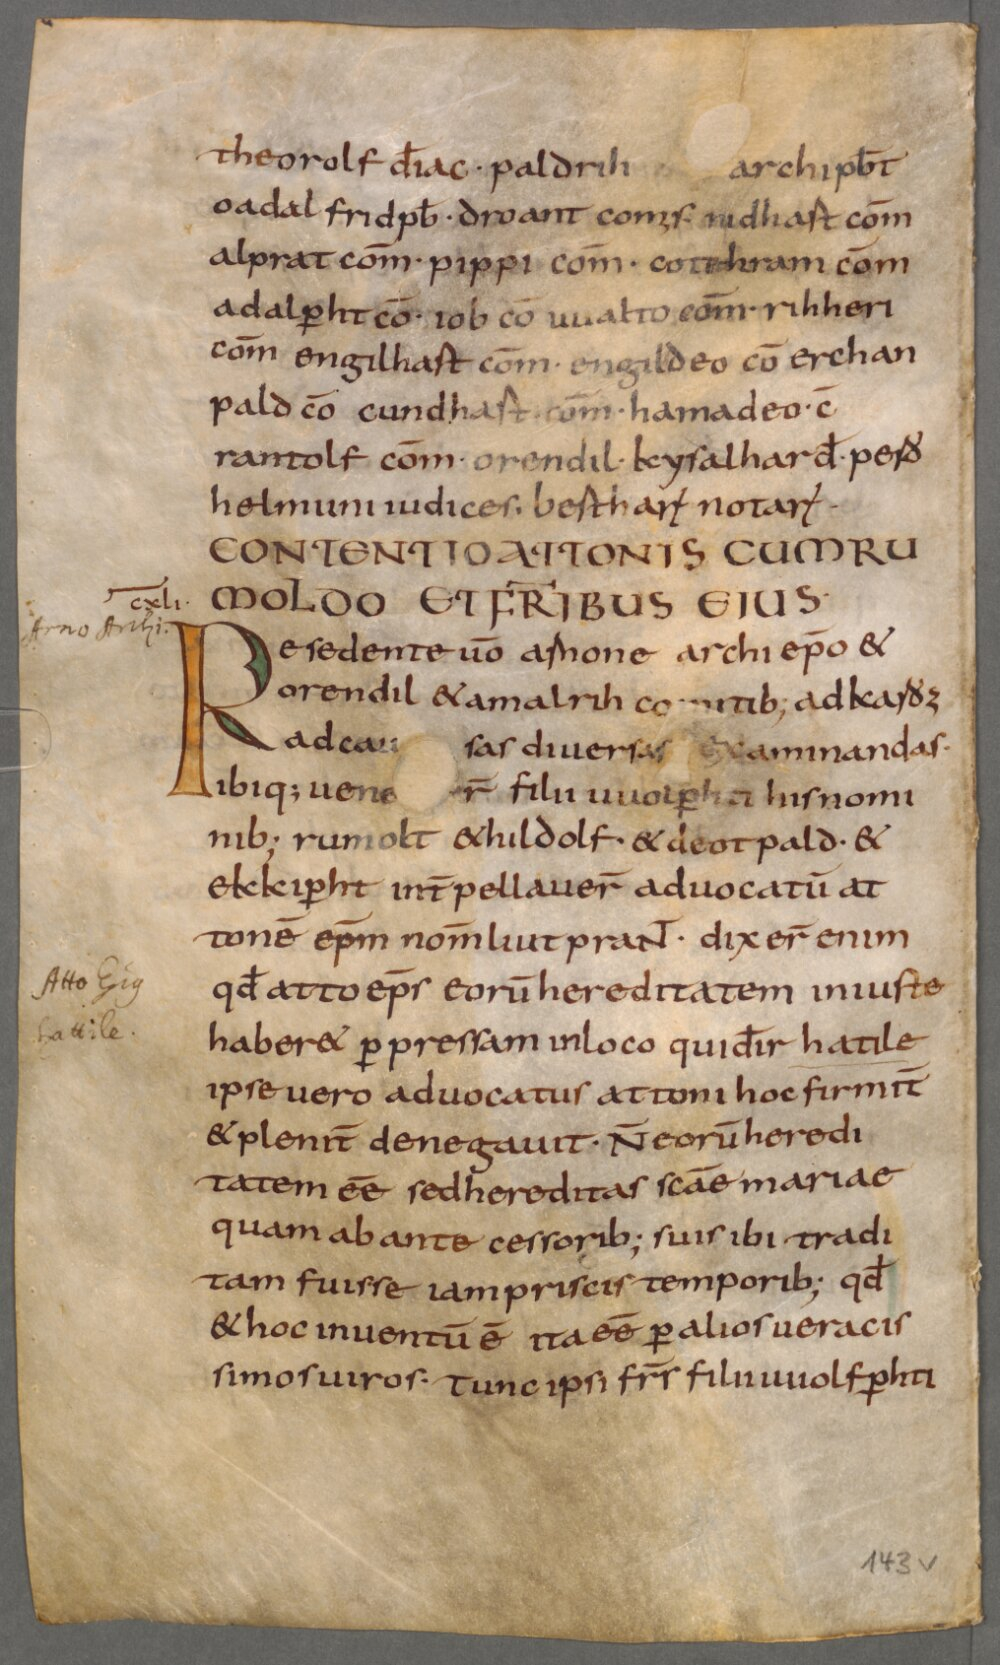 theorolf diac̄· paldrih archipb̄t
oadal fridpb̄· droant comis nidhast com̄
alprat com̄· pippi com̄· cotehram com̄
adalp̄ht cō· iob cō uuatto com̄· rihheri
com̄ engilhast com̄· engildeo cō erchan
pald cō cundhast com̄· hamadeo· c̄
rantolf com̄· orendil· keysalhard̄·
helmuni iudices· notar
CONTENTIO ATTONIS CUM RU
MOLDO ET FR̄IBUS EIUS·
cxli·
Arno Archi:
Resedente uō arnone archi ep̄o &
orendil & amalrih comitib; ad
ad cau sas diuersas examinandas·
ibiq; uene r̄ filii uuolp̄hti his nomi
nib; rumolt & hildolf· & deotpald· &
ekkip̄ht int̄pellauer̄ aduocatū at
tonē ep̄m nom̄ liutpraNT· dixer̄ enim
qd̄ atto ep̄s eorū hereditatem iniuste
haber& p̄ pressam in loco qui dir̄ hatile
Atto
hattile·
ipse uero aduocatus attoni hoc firmit̄
& plenit̄ denegauit· N̄ eorū heredi
tatem eē sed hereditas scāe mariae
quam ab ante cessorib; suis ibi tradi
tam fuisse iam priscis temporib; qd̄
& hoc inuentū ē ita eē p̄ alios ueracis
simos uiros· Tunc ipsi fr̄s filii uuolfp̄hti
143 v